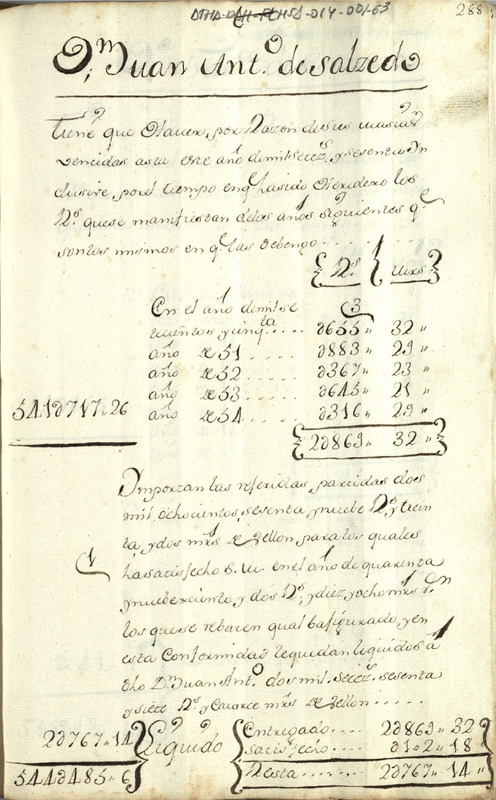 ATHA-DAH-FCHSA-014-001-63
288
D.n Juan Ant.o de salzedo
Tiene que Hauer, por Razon de sus
vencidas asta este año de mil setez.s y sesenta Yn
clusive, por el tiempo en q.e ha sido Heredero los
R.s que se manifiestan de los años siguientes q.e
son los mismos en q.e las debengo
R.s mrs
En el año de mil se
tecientos y cinq.ta .... 0655 " 32 "
año de 51 .... 0883 " 29 "
año de 52 .... 0367 " 23 "
año de 53 .... 0645 " 21 "
5410717 " 26 año de 54 .... 0316 " 29 "
20869 " 32 "
Ymportan las referidas partidas dos
mil ochocientos, sesenta y nuebe R.s y trein
ta, y dos mrs de Vellon, para los quales
ha satisfecho S. M. en el año de quarenta
y nuebe ciento, y dos R.s, y diez y ocho mrs V.n
los que se rebaxen qual ba figurado, y en
esta Conformidad le quedan liquidos â
dho D.n Juan Ant.o dos mil setez.s sesenta
y siete R.s y Catorce mrs de Vellon
20767 " 14 Liquido Entregado .... 20869 " 32
satisfecho .... 0102 " 18 "
5440485 " 6 Resta .... 20767 " 14 "